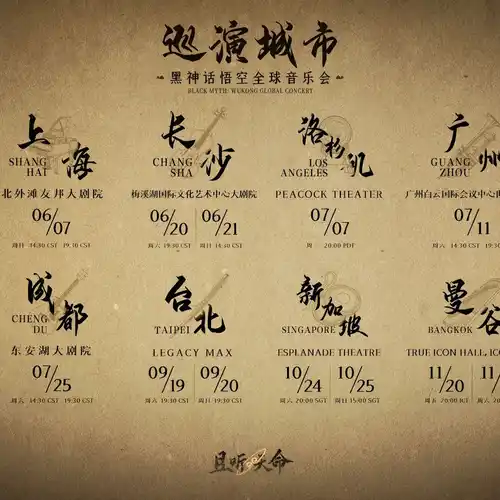 巡演城市
黑神话悟空全球音乐会
BLACK MYTH: WUKONG GLOBAL CONCERT
上海
SHANG HAI
北外滩友邦大剧院
06/07
周日 14:30 CST 19:30 CST
长沙
CHANG SHA
梅溪湖国际文化艺术中心大剧院
06/20 06/21
周六 19:30 CST 周日 14:30 CST
洛杉矶
LOS ANGELES
PEACOCK THEATER
07/07
20:00 PDT
广州
GUANG ZHOU
广州白云国际会议中心
07/11
周六 14:30 CST 19:30
成都
CHENG DU
东安湖大剧院
07/25
周六 14:30 CST 19:30 CST
台北
TAIPEI
LEGACY MAX
09/19 09/20
周六 19:30 CST 周日 19:30 CST
新加坡
SINGAPORE
ESPLANADE THEATRE
10/24 10/25
周六 20:00 SGT 周日 15:00 SGT
曼谷
BANGKOK
TRUE ICON HALL, IC
11/20 11/
周五 20:00 ICT
且听天命